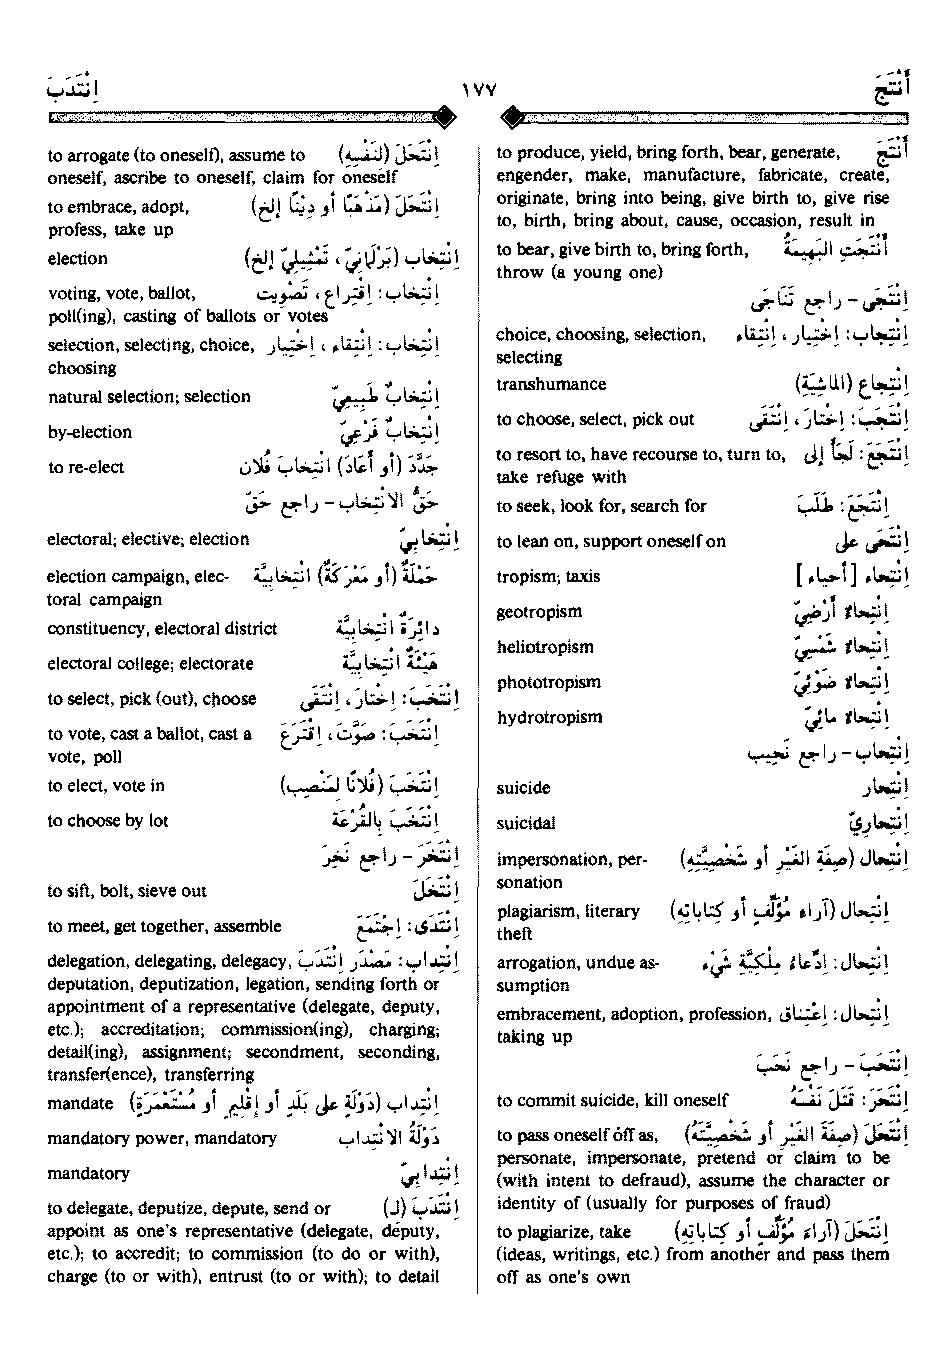 أَنْتَجَ
١٧٧
اِنْتَدَبَ
أَنْتَجَ to produce, yield, bring forth, bear, generate,
engender, make, manufacture, fabricate, create,
originate, bring into being, give birth to, give rise
to, birth, bring about, cause, occasion, result in
أَنْتَجَت البَهِيمَةُ to bear, give birth to, bring forth,
throw (a young one)
اِنْتَجَى - راجع تَنَاجَى
اِنْتِجاب: اِخْتِيار ، اِنْتِقاء choice, choosing, selection,
selecting
اِنْتِجاع (الماشِيَة) transhumance
اِنْتَجَبَ: اِخْتارَ ، اِنْتَقَى to choose, select, pick out
اِنْتَجَعَ: لَجَأَ إلى to resort to, have recourse to, turn to,
take refuge with
اِنْتَجَعَ: طَلَبَ to seek, look for, search for
اِنْتَحَى على to lean on, support oneself on
اِنْتِحاء [أحياء] tropism; taxis
اِنْتِحاءٌ أَرْضِيّ geotropism
اِنْتِحاءٌ شَمْسِيّ heliotropism
اِنْتِحاءٌ ضَوْئِيّ phototropism
اِنْتِحاءٌ مائِيّ hydrotropism
اِنْتِحاب - راجع نَحِيب
اِنْتِحار suicide
اِنْتِحارِيّ suicidal
اِنْتِحال (صِفَةِ الغَيْرِ أو شَخْصِيَّتِهِ) impersonation, per-
sonation
اِنْتِحال (آراء مُؤَلِّفٍ أو كِتاباتِهِ) plagiarism, literary
theft
اِنْتِحال: اِدِّعاءُ مِلْكِيَّةِ شَيْء arrogation, undue as-
sumption
اِنْتِحال: اِعْتِناق embracement, adoption, profession,
taking up
اِنْتَحَبَ - راجع نَحَبَ
اِنْتَحَرَ: قَتَلَ نَفْسَهُ to commit suicide, kill oneself
اِنْتَحَلَ (صِفَةَ الغَيْرِ أو شَخْصِيَّتَهُ) to pass oneself off as,
personate, impersonate, pretend or claim to be
(with intent to defraud), assume the character or
identity of (usually for purposes of fraud)
اِنْتَحَلَ (آراءَ مُؤَلِّفٍ أو كِتاباتِهِ) to plagiarize, take
(ideas, writings, etc.) from another and pass them
off as one's own
اِنْتَحَلَ (لِنَفْسِهِ) to arrogate (to oneself), assume to
oneself, ascribe to oneself, claim for oneself
اِنْتَحَلَ (مَذْهَبًا أو دِيْنًا إلخ) to embrace, adopt,
profess, take up
اِنْتِخاب (بَرْلَمانِيّ ، تَمْثِيلِيّ إلخ) election
اِنْتِخاب: اِقْتِراع ، تَصْوِيت voting, vote, ballot,
poll(ing), casting of ballots or votes
اِنْتِخاب: اِنْتِقاء ، اِخْتِيار selection, selecting, choice,
choosing
اِنْتِخابٌ طَبِيعِيّ natural selection; selection
اِنْتِخابٌ فَرْعِيّ by-election
جَدَّدَ (أو أَعَادَ) انْتِخابَ فُلان to re-elect
حَقُّ الانْتِخاب - راجع حَقّ
اِنْتِخابِيّ electoral; elective; election
حَمْلَةٌ (أو مَعْرَكَةٌ) انْتِخابِيَّة election campaign, elec-
toral campaign
دائِرَةٌ انْتِخابِيَّة constituency, electoral district
هَيْئَةٌ انْتِخابِيَّة electoral college; electorate
اِنْتَخَبَ: اِخْتارَ ، اِنْتَقَى to select, pick (out), choose
اِنْتَخَبَ: صَوَّتَ ، اِقْتَرَعَ to vote, cast a ballot, cast a
vote, poll
اِنْتَخَبَ (فُلانًا لِمَنْصِب) to elect, vote in
اِنْتَخَبَ بِالقُرْعَة to choose by lot
اِنْتَخَرَ - راجع نَخَرَ
اِنْتَخَلَ to sift, bolt, sieve out
اِنْتَدَى: اِجْتَمَعَ to meet, get together, assemble
اِنْتِداب: مَصْدَر اِنْتَدَبَ delegation, delegating, delegacy,
deputation, deputization, legation, sending forth or
appointment of a representative (delegate, deputy,
etc.); accreditation; commission(ing), charging;
detail(ing), assignment; secondment, seconding,
transfer(ence), transferring
اِنْتِداب (دَوْلَةٍ على بَلَدٍ أو إقْلِيمٍ أو مُسْتَعْمَرَة) mandate
دَوْلَةُ الانْتِداب mandatory power, mandatory
اِنْتِدابِيّ mandatory
اِنْتَدَبَ (لـ) to delegate, deputize, depute, send or
appoint as one's representative (delegate, deputy,
etc.); to accredit; to commission (to do or with),
charge (to or with), entrust (to or with); to detail